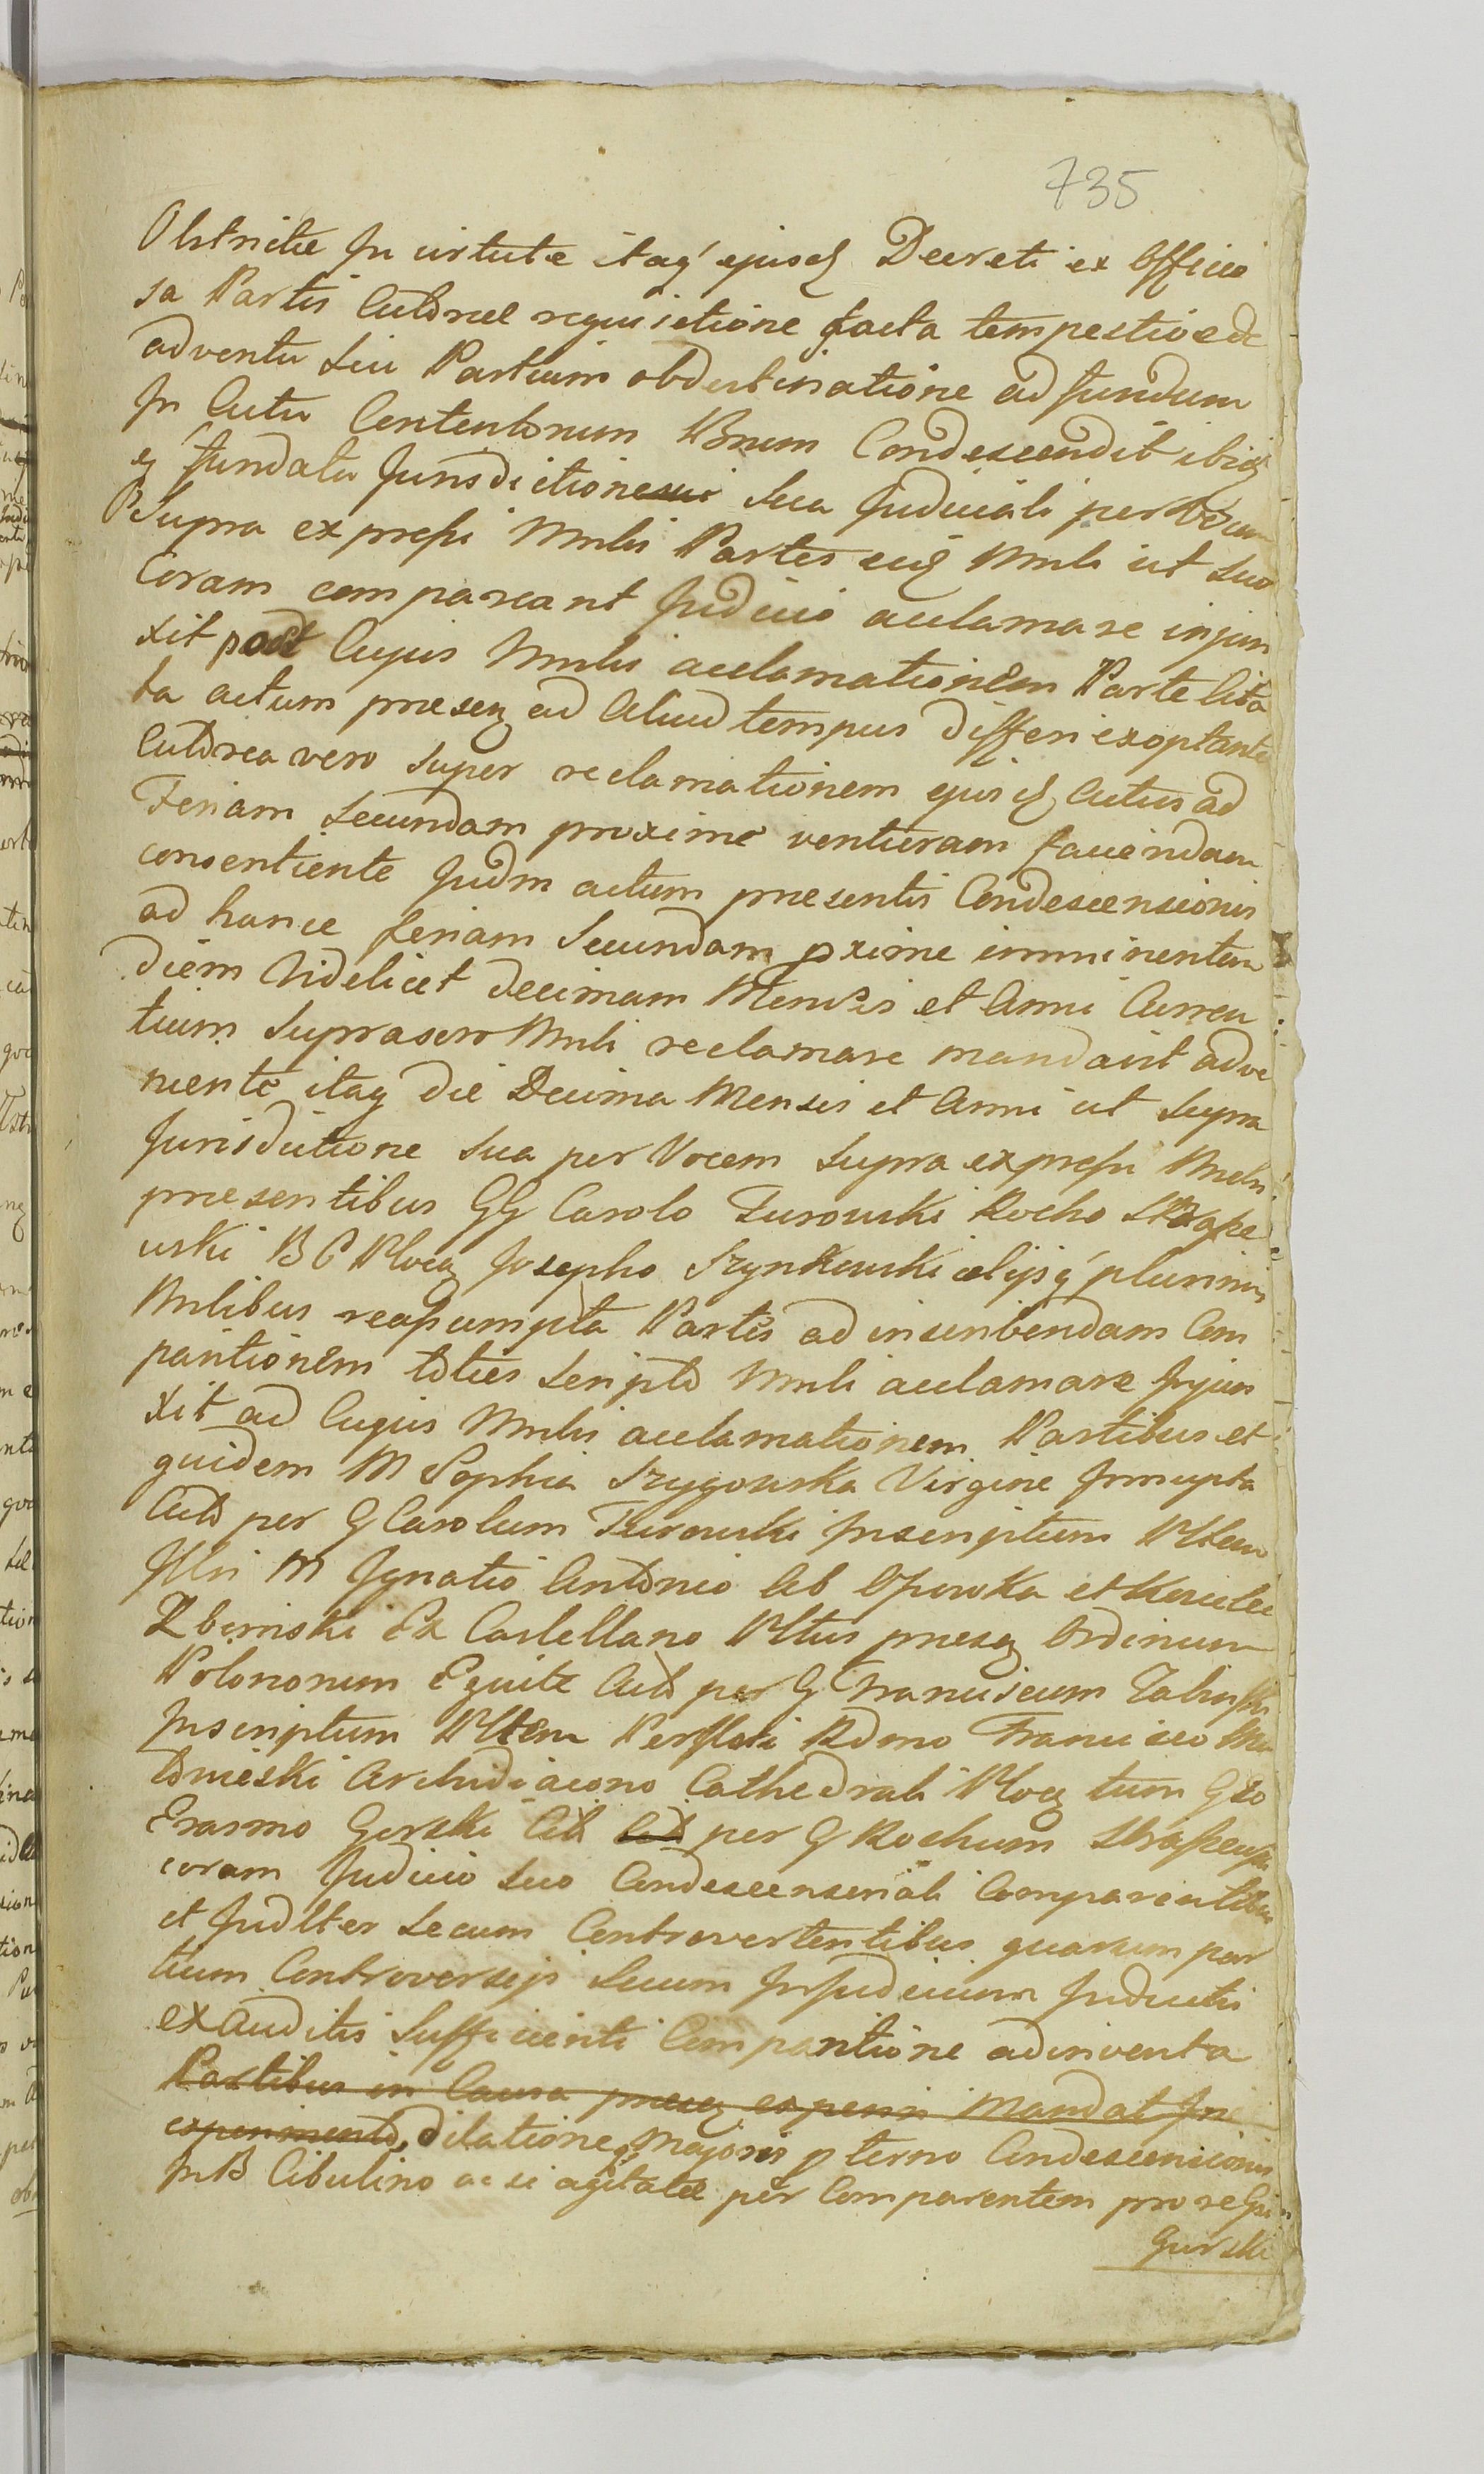 735
Obstricte In virtute itaq ejusd Decreti ex Officio
sa Partis Actoreae requisitione facta tempestive de
adventu Sui Partium obdestinatione ad fundum
In Actu Contentorum Bnrum Condescendit ibiq
q fundata Jurisdictione sua Judiciali per Vocem
Supra expressi Mnlis Partes eidq Mnli ut Suo
Coram compareant Judicio acclamare injun
xit post Cujus Mnlis acclamationem Parte Cita
ta actum praesen ad Aliud tempus differi exoptante
Actorea vero super reclamationem ejusd Actus ad
Feriam Secundam proxime venturam faciendam
consentiente Judm actum praesentis Condescensionis
ad hance feriam Secundam pxime imminentem
diem Videlicet decimam Mensis et Anni Curren
tium Suprascro Mnli reclamare mandavit adve
niente itaq die Decima Mensis et Anni ut Supra
Jurisdictione sua per Vocem Supra expressi Mnlis
praesentibus GG Carolo Turowski Rocho
wski B C Ploc Josepho Szynkowski alijsq plurimis
Mnlibus reassumpta Partes ad inscribendam Com
paritionem toties Scripto Mnli acclamare Injun
xit ad Cujus Mnlis acclamationem Partibus et
quidem M Sophia Szygowska Virgine Innupta
Act per G Carolum Turowski Inscriptum Ptlem
Illri M Ignatio Antonio Ab Oporoka et
Zboinski Ex Castellano Pltus praesen Ordinum
Polonorum Equite Citt per G Franciscum
Inscriptum Pltem Perllstri Rdmo Francisco
tomieski Archidiacono Cathedrali Ploc tum Gso
Erasmo Gorski Citt Citt per G Rochum
coram Judicio Suo Condescensoriali Comparentibus
et Judlter Secum Controvertentibus quarum par
tium Controversijs Suum In Judicium Inductis
exauditis Sufficienti Comparitione adinventa
Partibus in Causa praesen experiri Mandat In
experimento dilatione Majoris p termo Condescensionis
In B Cibulino ac si agitatae per Comparentem pro se Gsm
Gurski